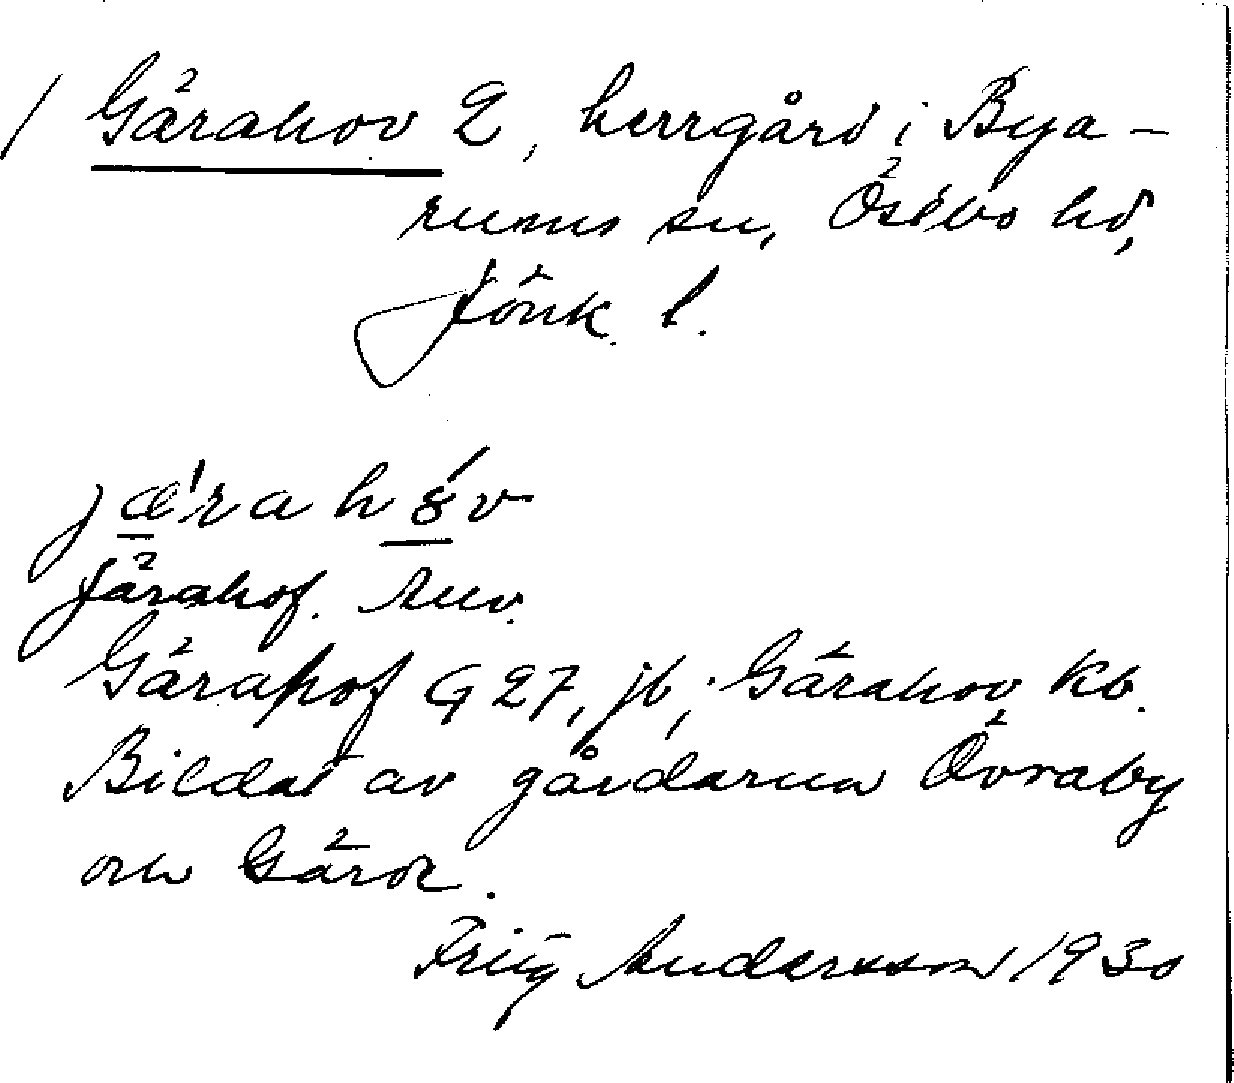 / Gärahov 2, herrgård i Bya-
rums sn, Östbo hd,
Jönk. l.
jæ'rahóv
Järahof. Muv.
Gärahof G 27, jb, ; Gärahov kb.
Bildat av gårdarna Övraby
och Gärde.
Andersson 1930